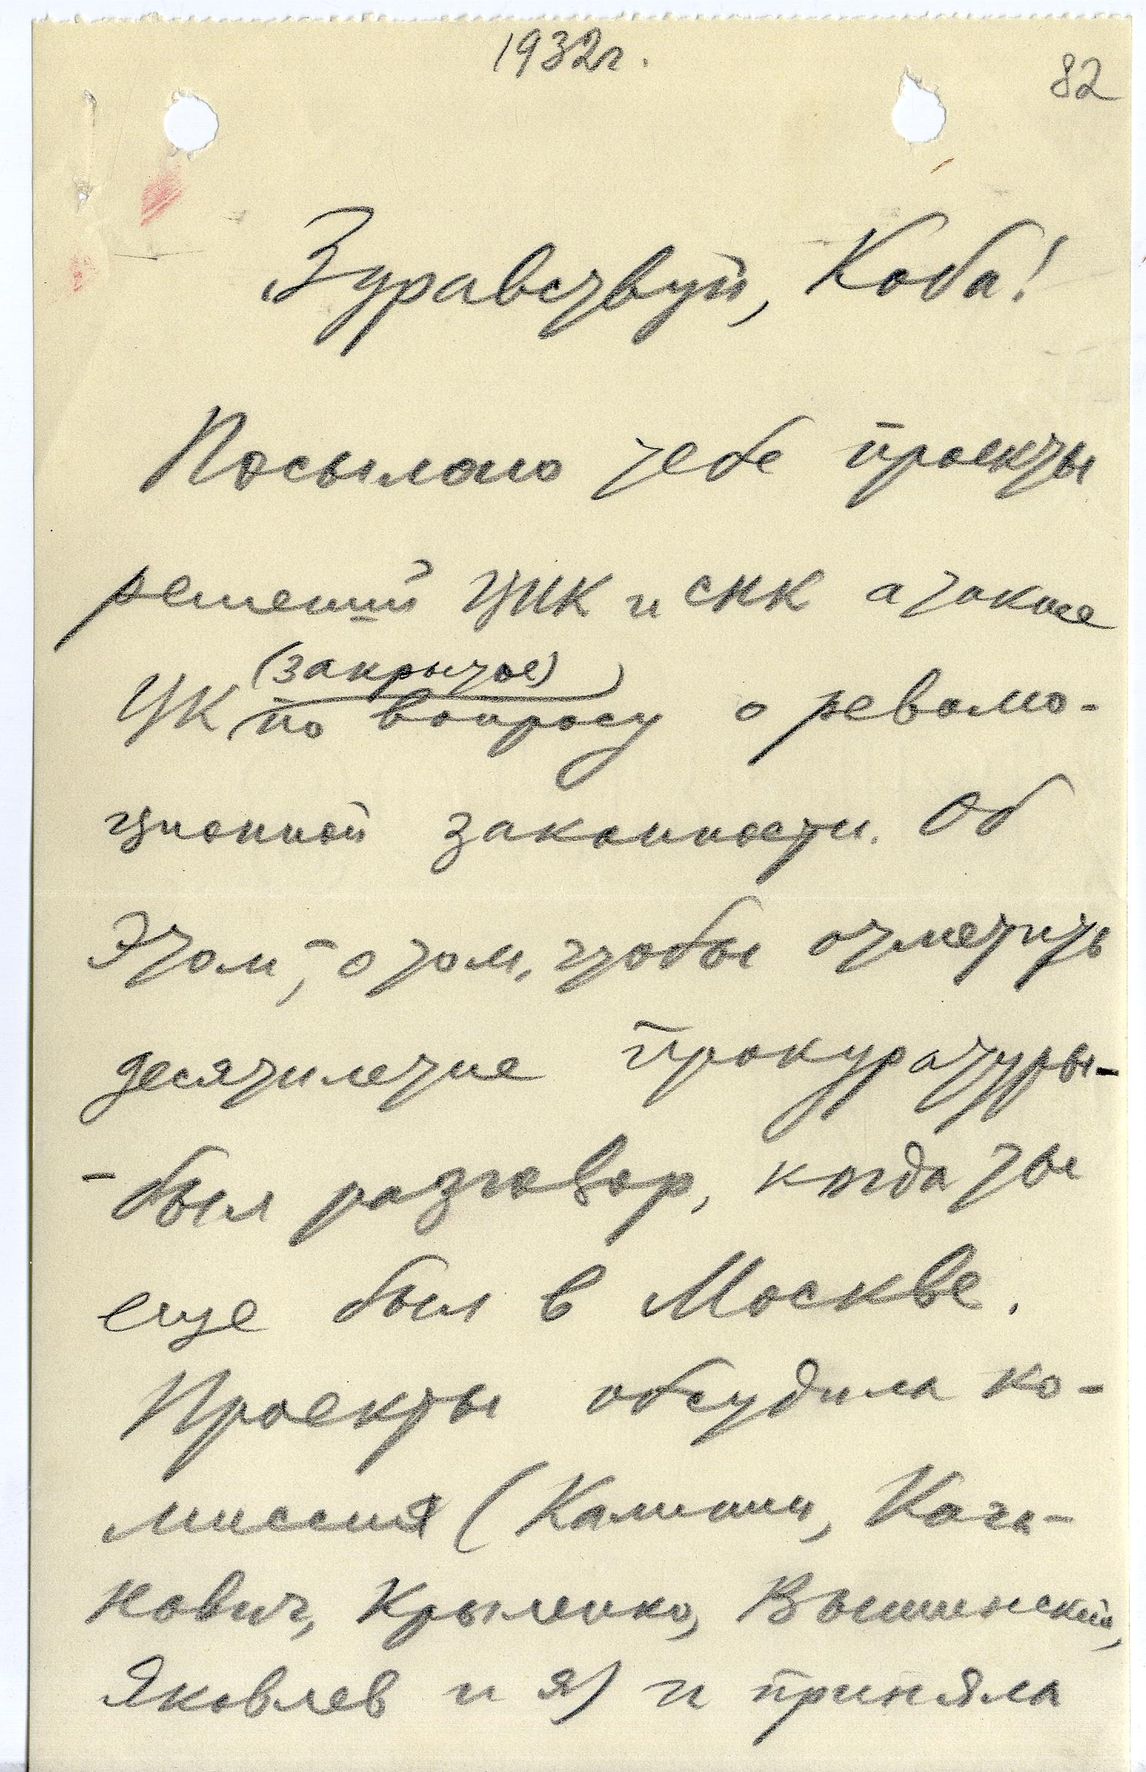 1932г.
82
Здравствуй, Коба!
Посылаю тебе проекты
решений ЦИК и СНК а также
(закрытое)
ЦК по вопросу о револю-
ционной законности. Об
этом, – о том, чтобы отметить
десятилетие прокуратуры –
– был разговор, когда ты
еще был в Москве.
Проекты обсудила ко-
миссия (Калинин, Кага-
нович, Крыленко, Вышинский,
Яковлев и я) и приняла